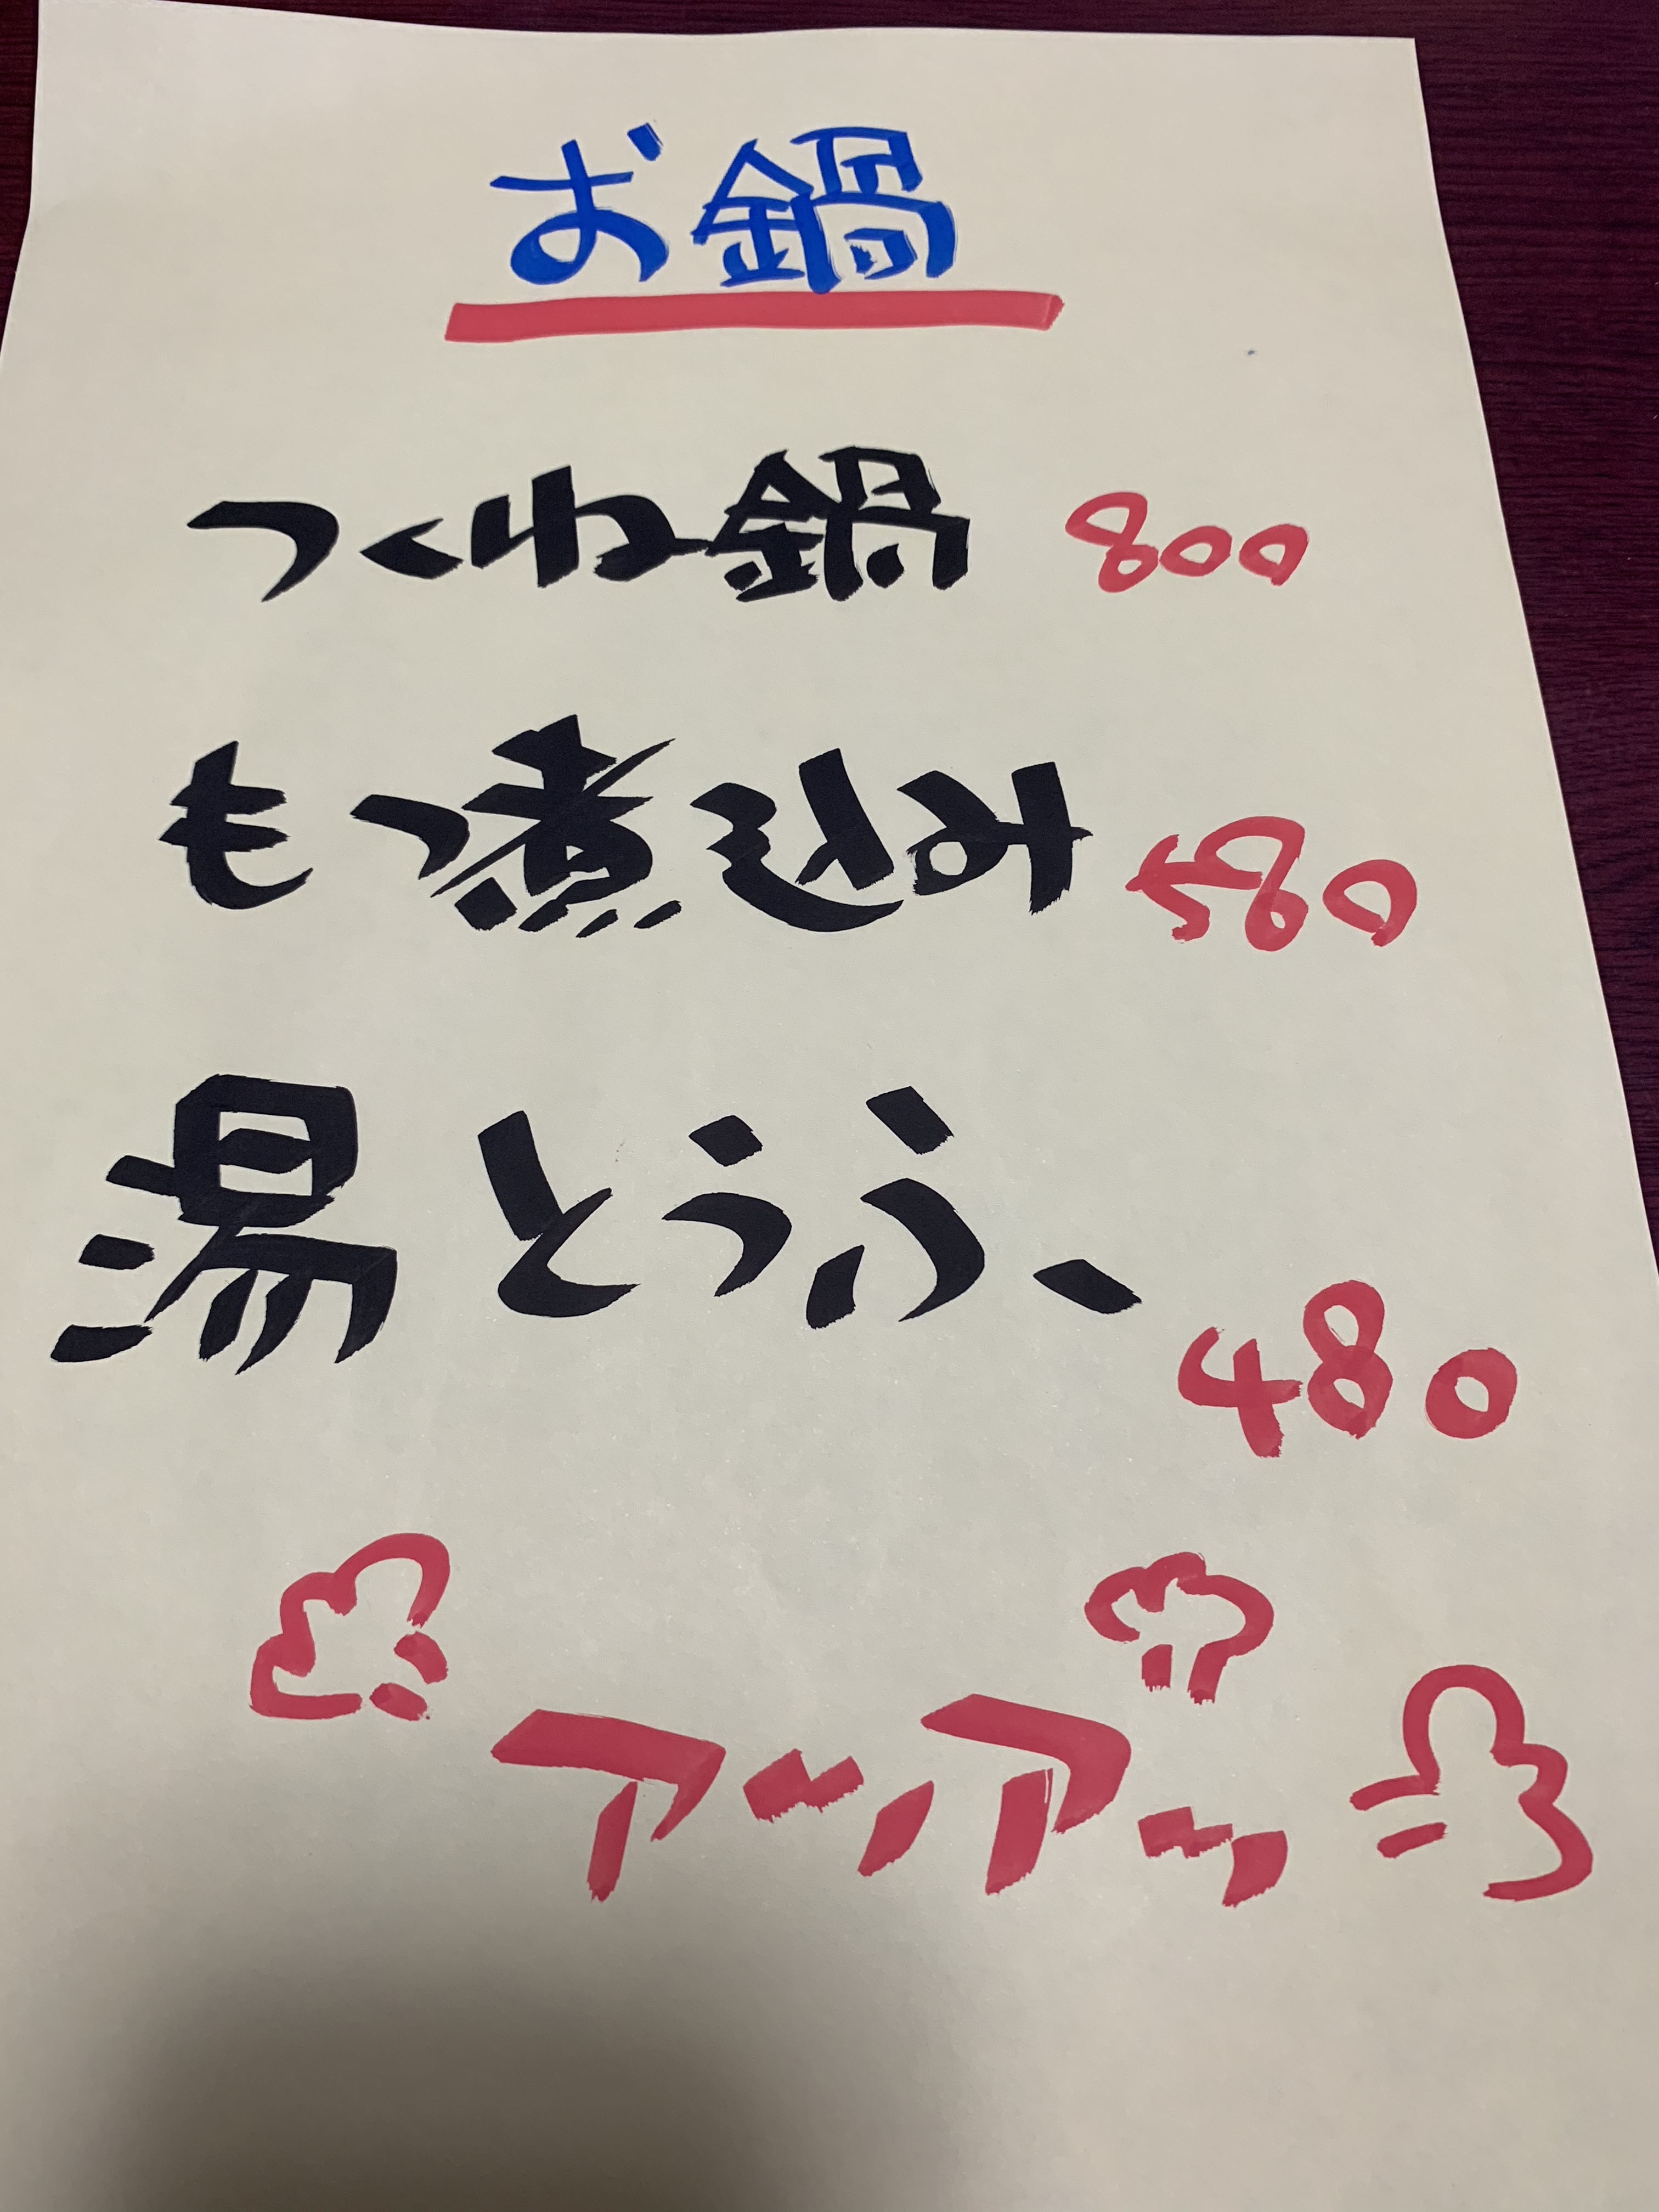 お鍋
つくね鍋 800
もつ煮込み 580
湯とうふ 480
アツアツ